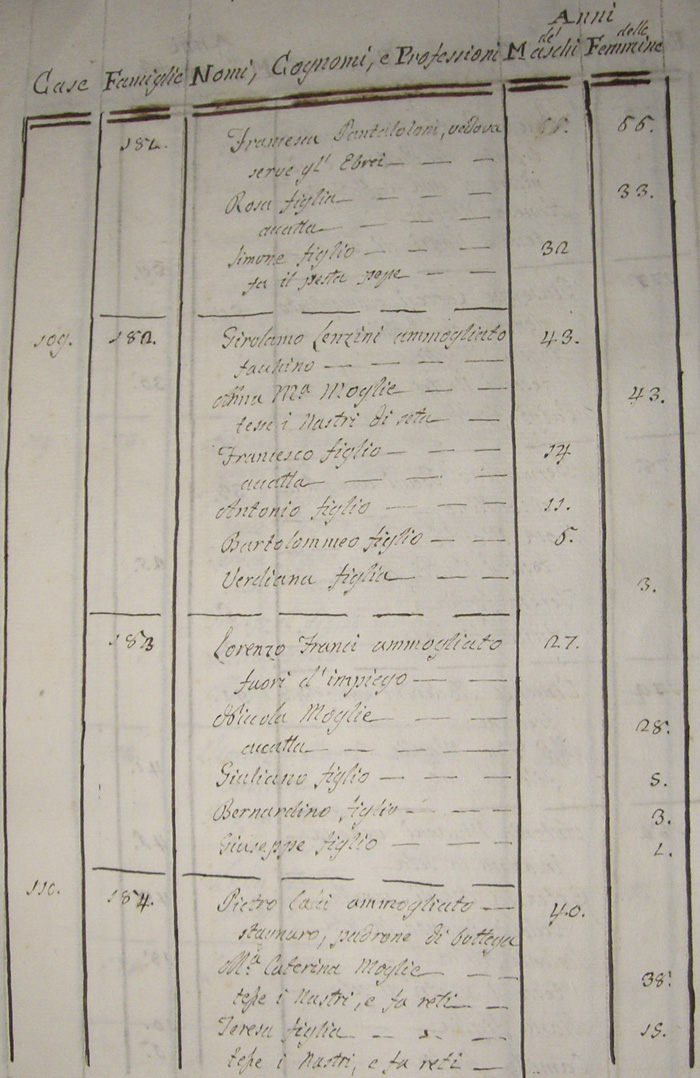 Anni
Case Famiglie Nomi, Cognomi, e Professioni del Maschi delle Femmine
181. Francesca Pantaloloni, vedova 55.
serve gl' Ebrei
Rosa figlia 33.
accatta
Simone figlio 32
fa il pesta pepe
109. 182. Girolamo Lenzini ammogliato 43.
fachino
Anna Mª Moglie 43.
tesse i Nastri di seta
Francesco figlio 14
accatta
Antonio figlio 11.
Bartolommeo figlio 5.
Verdiana figlia 3.
183 Lorenzo Franci ammogliato 27.
fuori d'impiego
Niccola Moglie 28.
accatta
Giuliano figlio 5.
Bernardino figlio 3.
Giuseppe figlio 1.
110. 184. Pietro ammogliato 40.
stagnaro, padrone di bottega
Mª Caterina Moglie 38.
tesse i Nastri, e fa reti
Teresa figlia 15.
tesse i Nastri, e fa reti